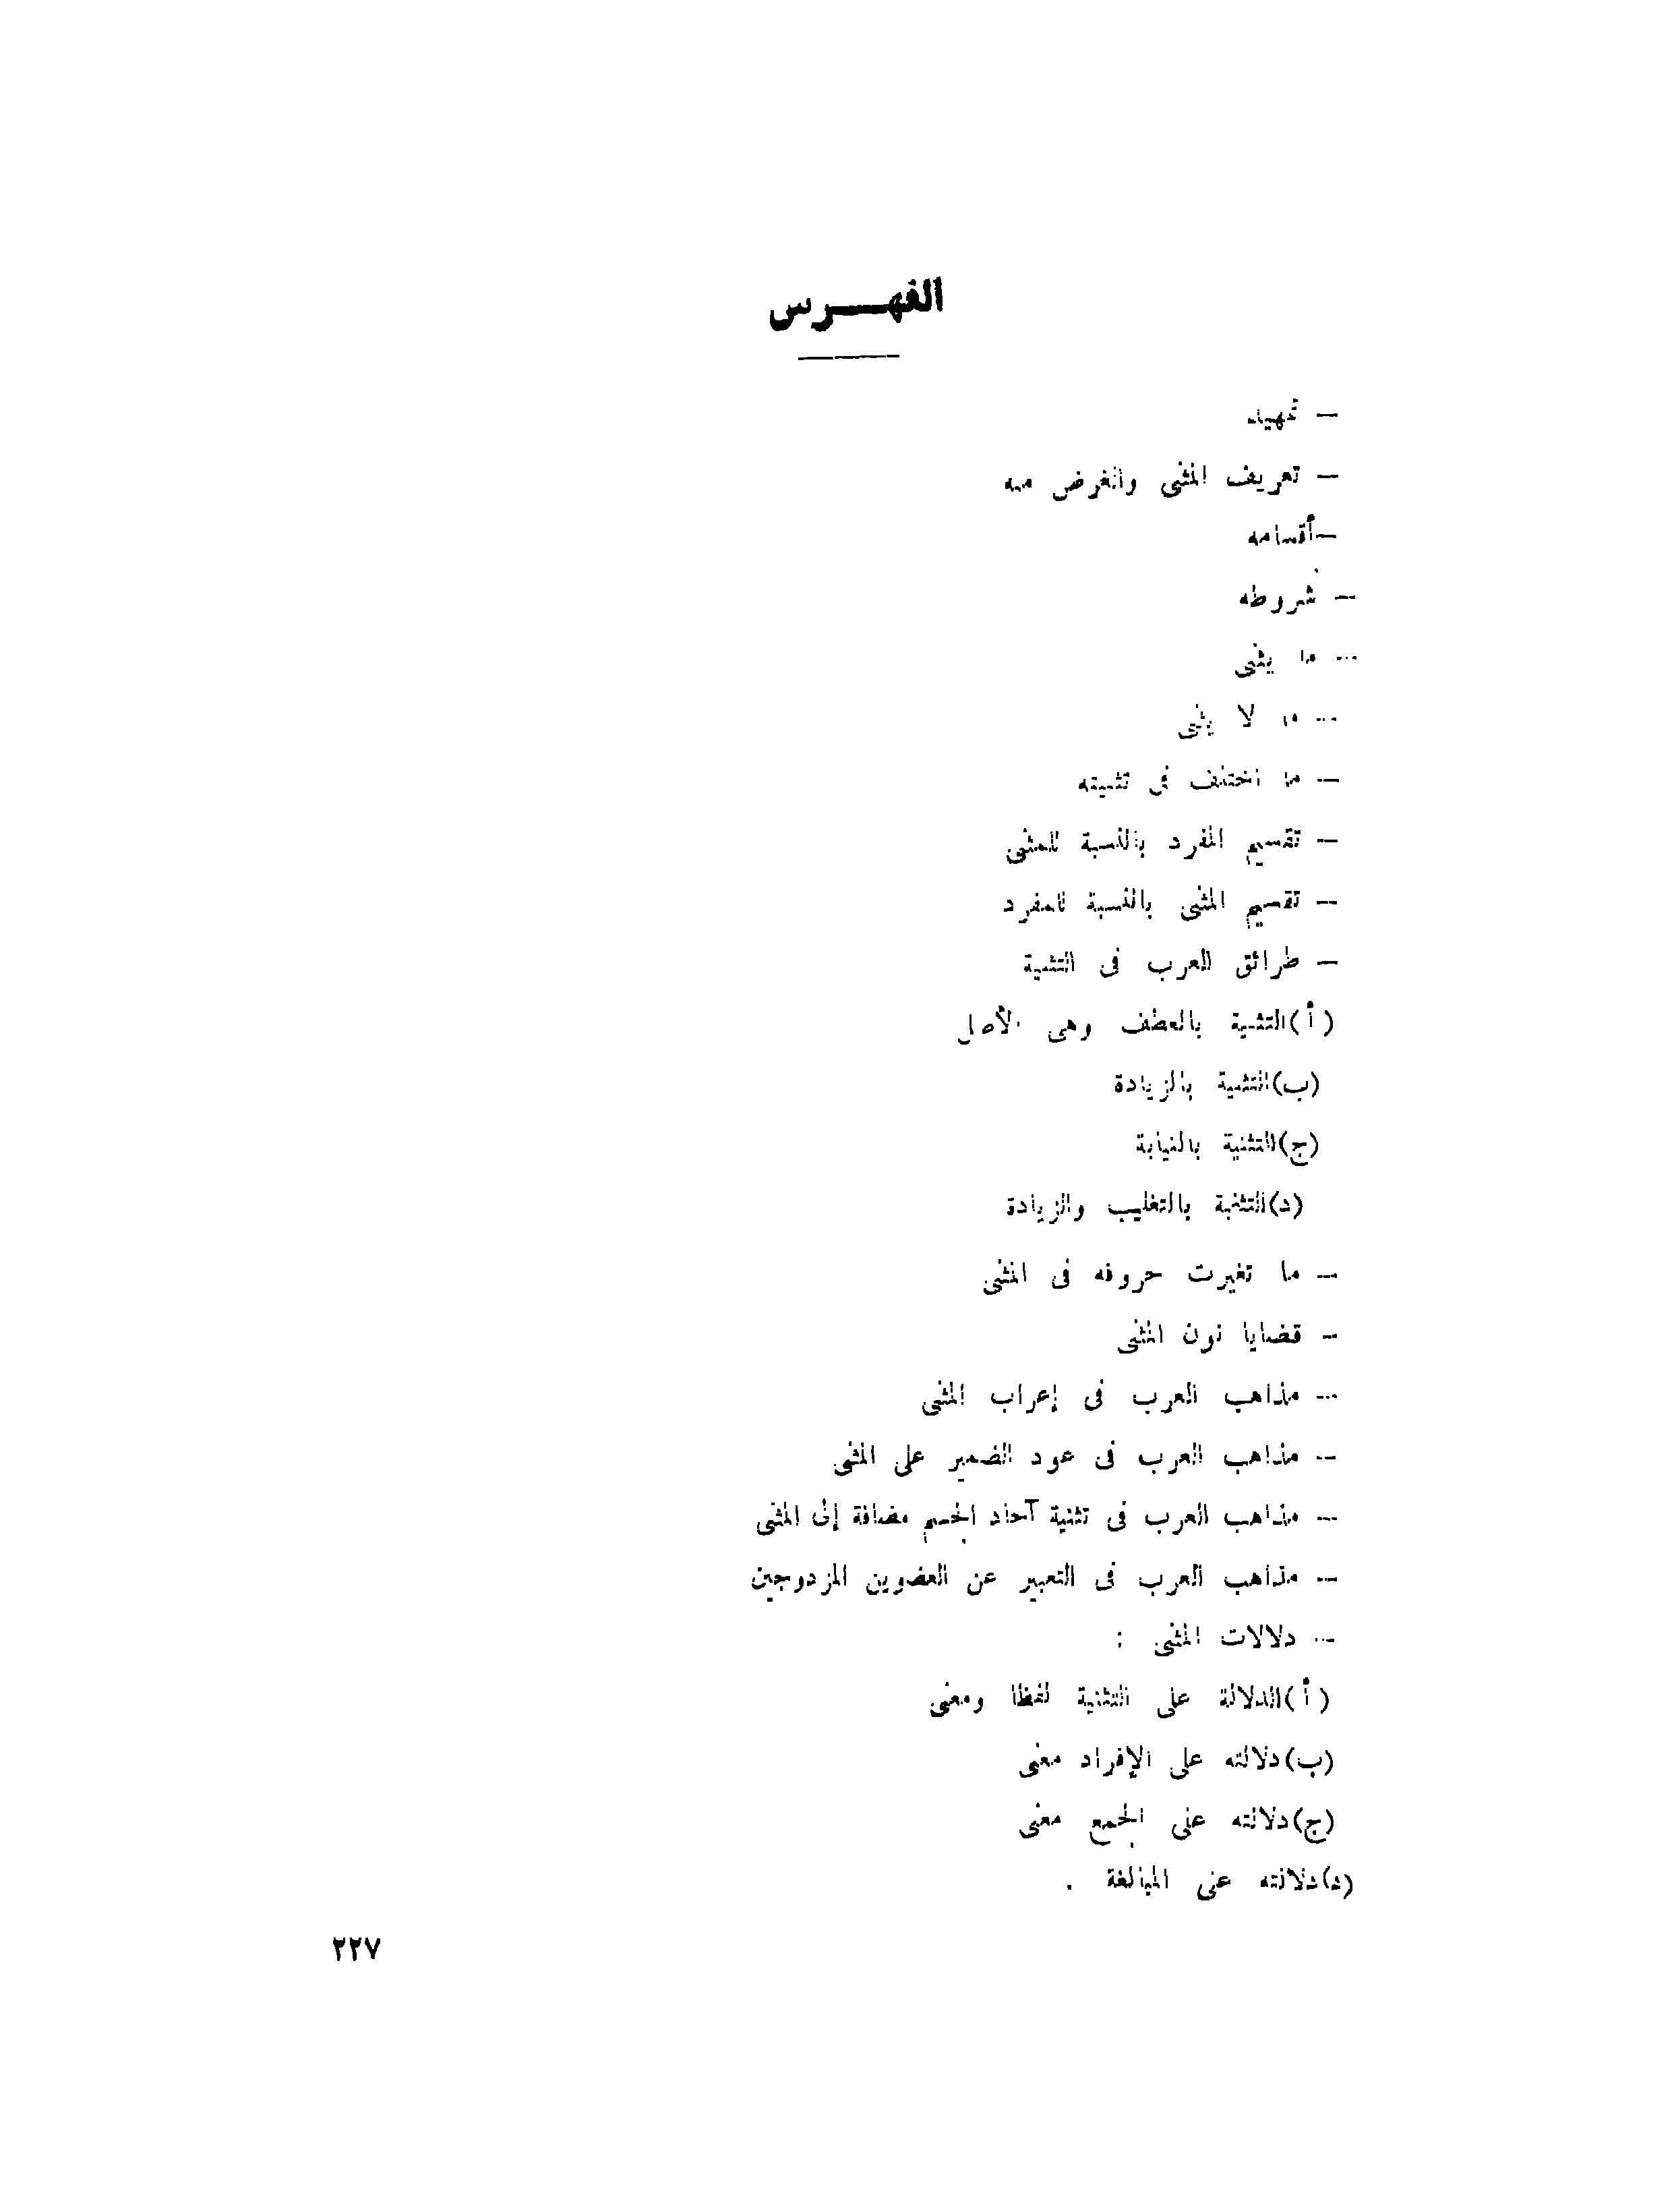 الفهـــرس
— تمهيد
— تعريف المثنى والغرض منه
— أقسامه
— شروطه
— ما يثنى
— ما لا يثنى
— ما اختلف فى تثنيته
— تقسيم المفرد بالنسبة للمثنى
— تقسيم المثنى بالنسبة للمفرد
— طرائق العرب فى التثنية
( أ )التثنية بالعطف وهى الأصل
(ب)التثنية بالزيادة
(ج)التثنية بالنيابة
(د)التثنية بالتغليب والزيادة
— ما تغيرت حروفه فى المثنى
— قضايا نون المثنى
— مذاهب العرب فى إعراب المثنى
— مذاهب العرب فى عود الضمير على المثنى
— مذاهب العرب فى تثنية آحاد الجسم مضافة إلى المثنى
— مذاهب العرب فى التعبير عن العضوين المزدوجين
— دلالات المثنى :
( أ )الدلالة على التثنية لفظا ومعنى
(ب)دلالته على الإفراد معنى
(ج)دلالته على الجمع معنى
(د)دلالته على المبالغة .
٢٢٧